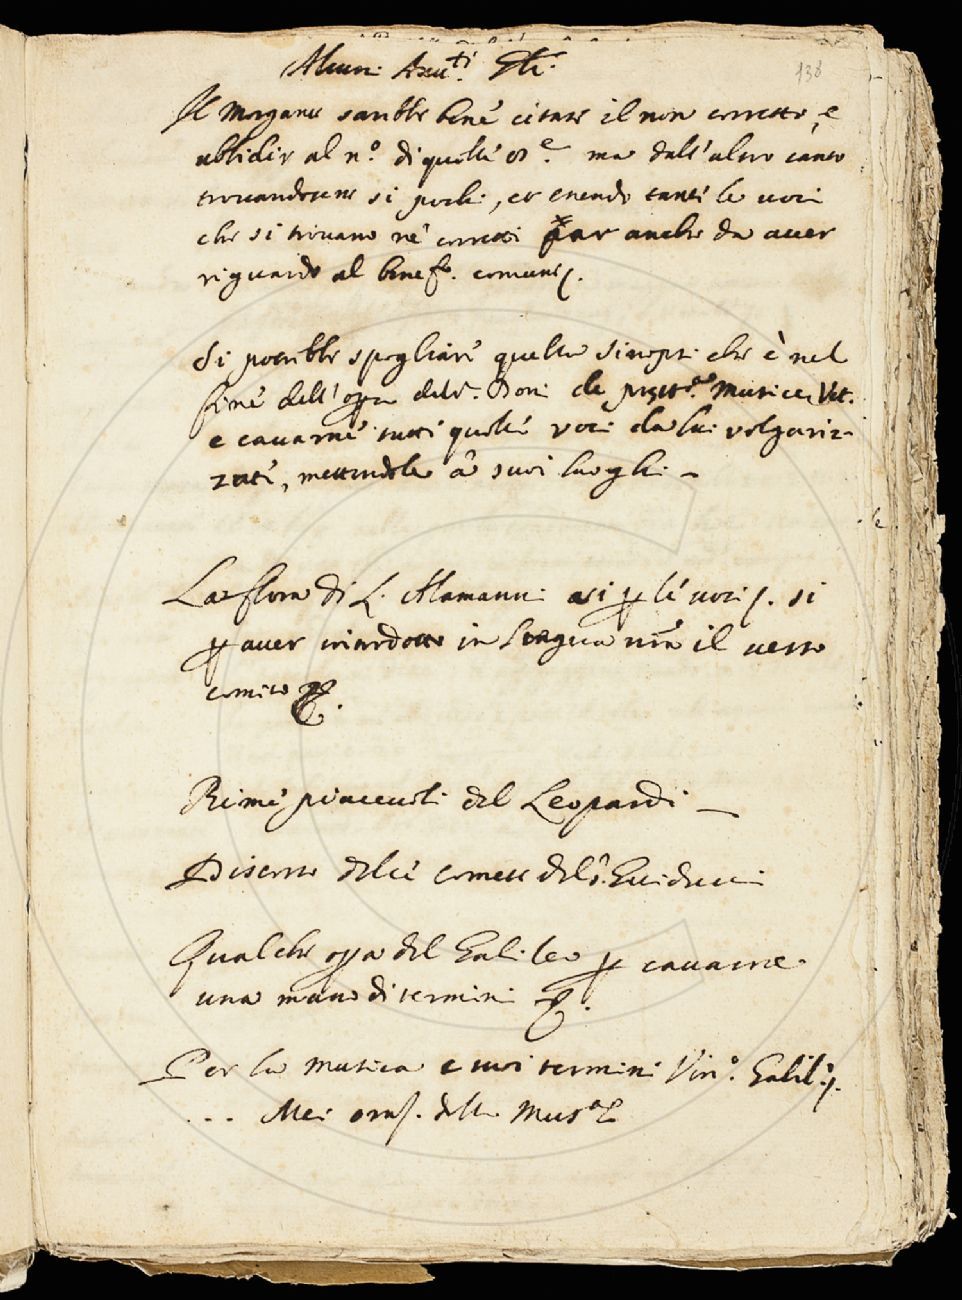 138
Alcuni Avv.ti Etc.
Il Morgante sarebbe bene citare il non corretto, e
ubbidir al n.º di quelle 8.e ma dall'altro canto
trovandosene sì pochi, et essendo tanti le voci
che si trovano ne' corretti par anche da aver
riguardo al benef.º comune.
Si potrebbe spogliare quella Sinopsi che è nel
fine dell'opa del S. Doni de prest.a Musicæ Vet.
e cavarne tutte quelle voci da lui volgariz-
zate, mettendole a suoi luoghi -
La Flora di L. Alamanni asi p le voci, si
p aver introdotto in lingua nra il verso
comico
Rime piacevoli del Leopardi -
Discorso delle Comete del S. Guiducci
Qualche opa del Galileo p cavarne
una mano di termini
Per la musica e suoi termini Vin.º Galil.
... Mei della Mus.a